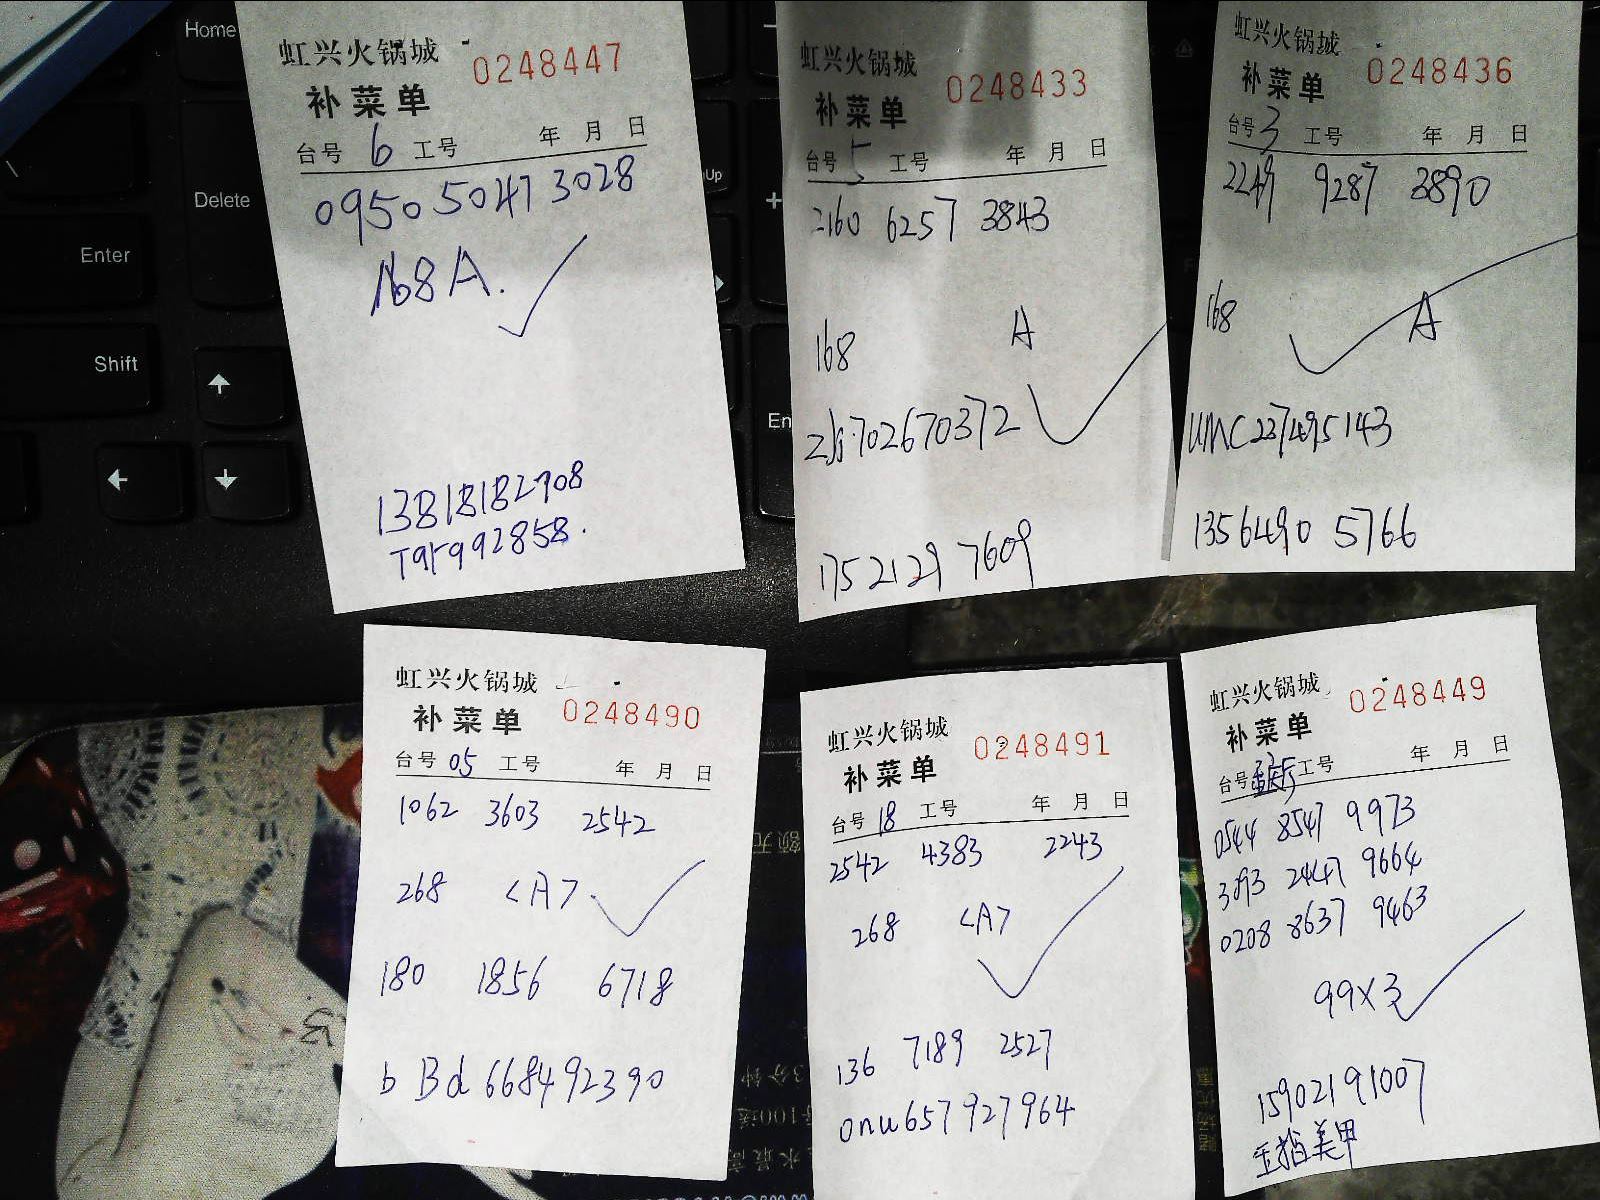 虹兴火锅城 0248447
补菜单
台号 6 工号 年 月 日
0950 5047 3028
168 A.
13818182708
T9F992858.
虹兴火锅城 0248433
补菜单
台号 5 工号 年 月 日
2160 6257 3843
168 A
702670372
17521297609
虹兴火锅城 0248436
补菜单
台号 3 工号 年 月 日
2249 9287 3890
168 A
UMC237495143
1356490 5766
虹兴火锅城 0248490
补菜单
台号 05 工号 年 月 日
1062 3603 2542
268 <A>
180 1856 6718
b B d 668492390
虹兴火锅城 0248491
补菜单
台号 18 工号 年 月 日
2542 4383 2243
268 <A>
136 7189 2527
onu657927964
虹兴火锅城 0248449
补菜单
台号 工号 年 月 日
0544 8547 9973
3093 2447 9664
0208 8637 9463
99X3
15902191007
玉指美甲
Home
Delete
Enter
Shift